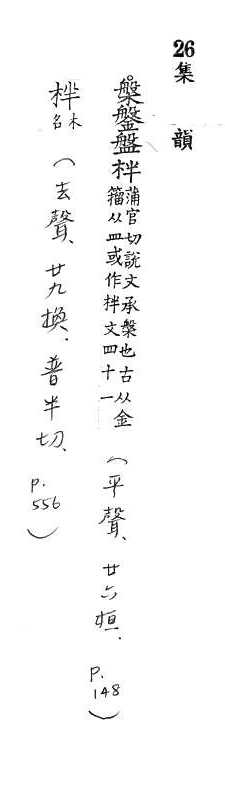 26
集韻
槃鎜盤柈 蒲官切說文承槃也古从金
籀从皿或作柈文四十一
(平聲、廿六桓、p.148)
柈 木
名
(去聲、廿九換、普半切、p.556)